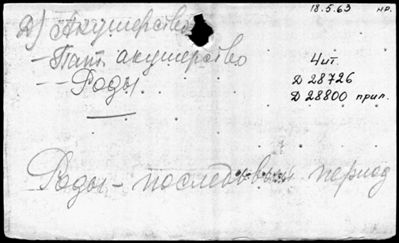 18.5.63 нр.
Д) Акушерство
– Пат. акушерство
– – Роды.
Чит.
Д 28726
Д 28800 прил.
Роды – последовый период